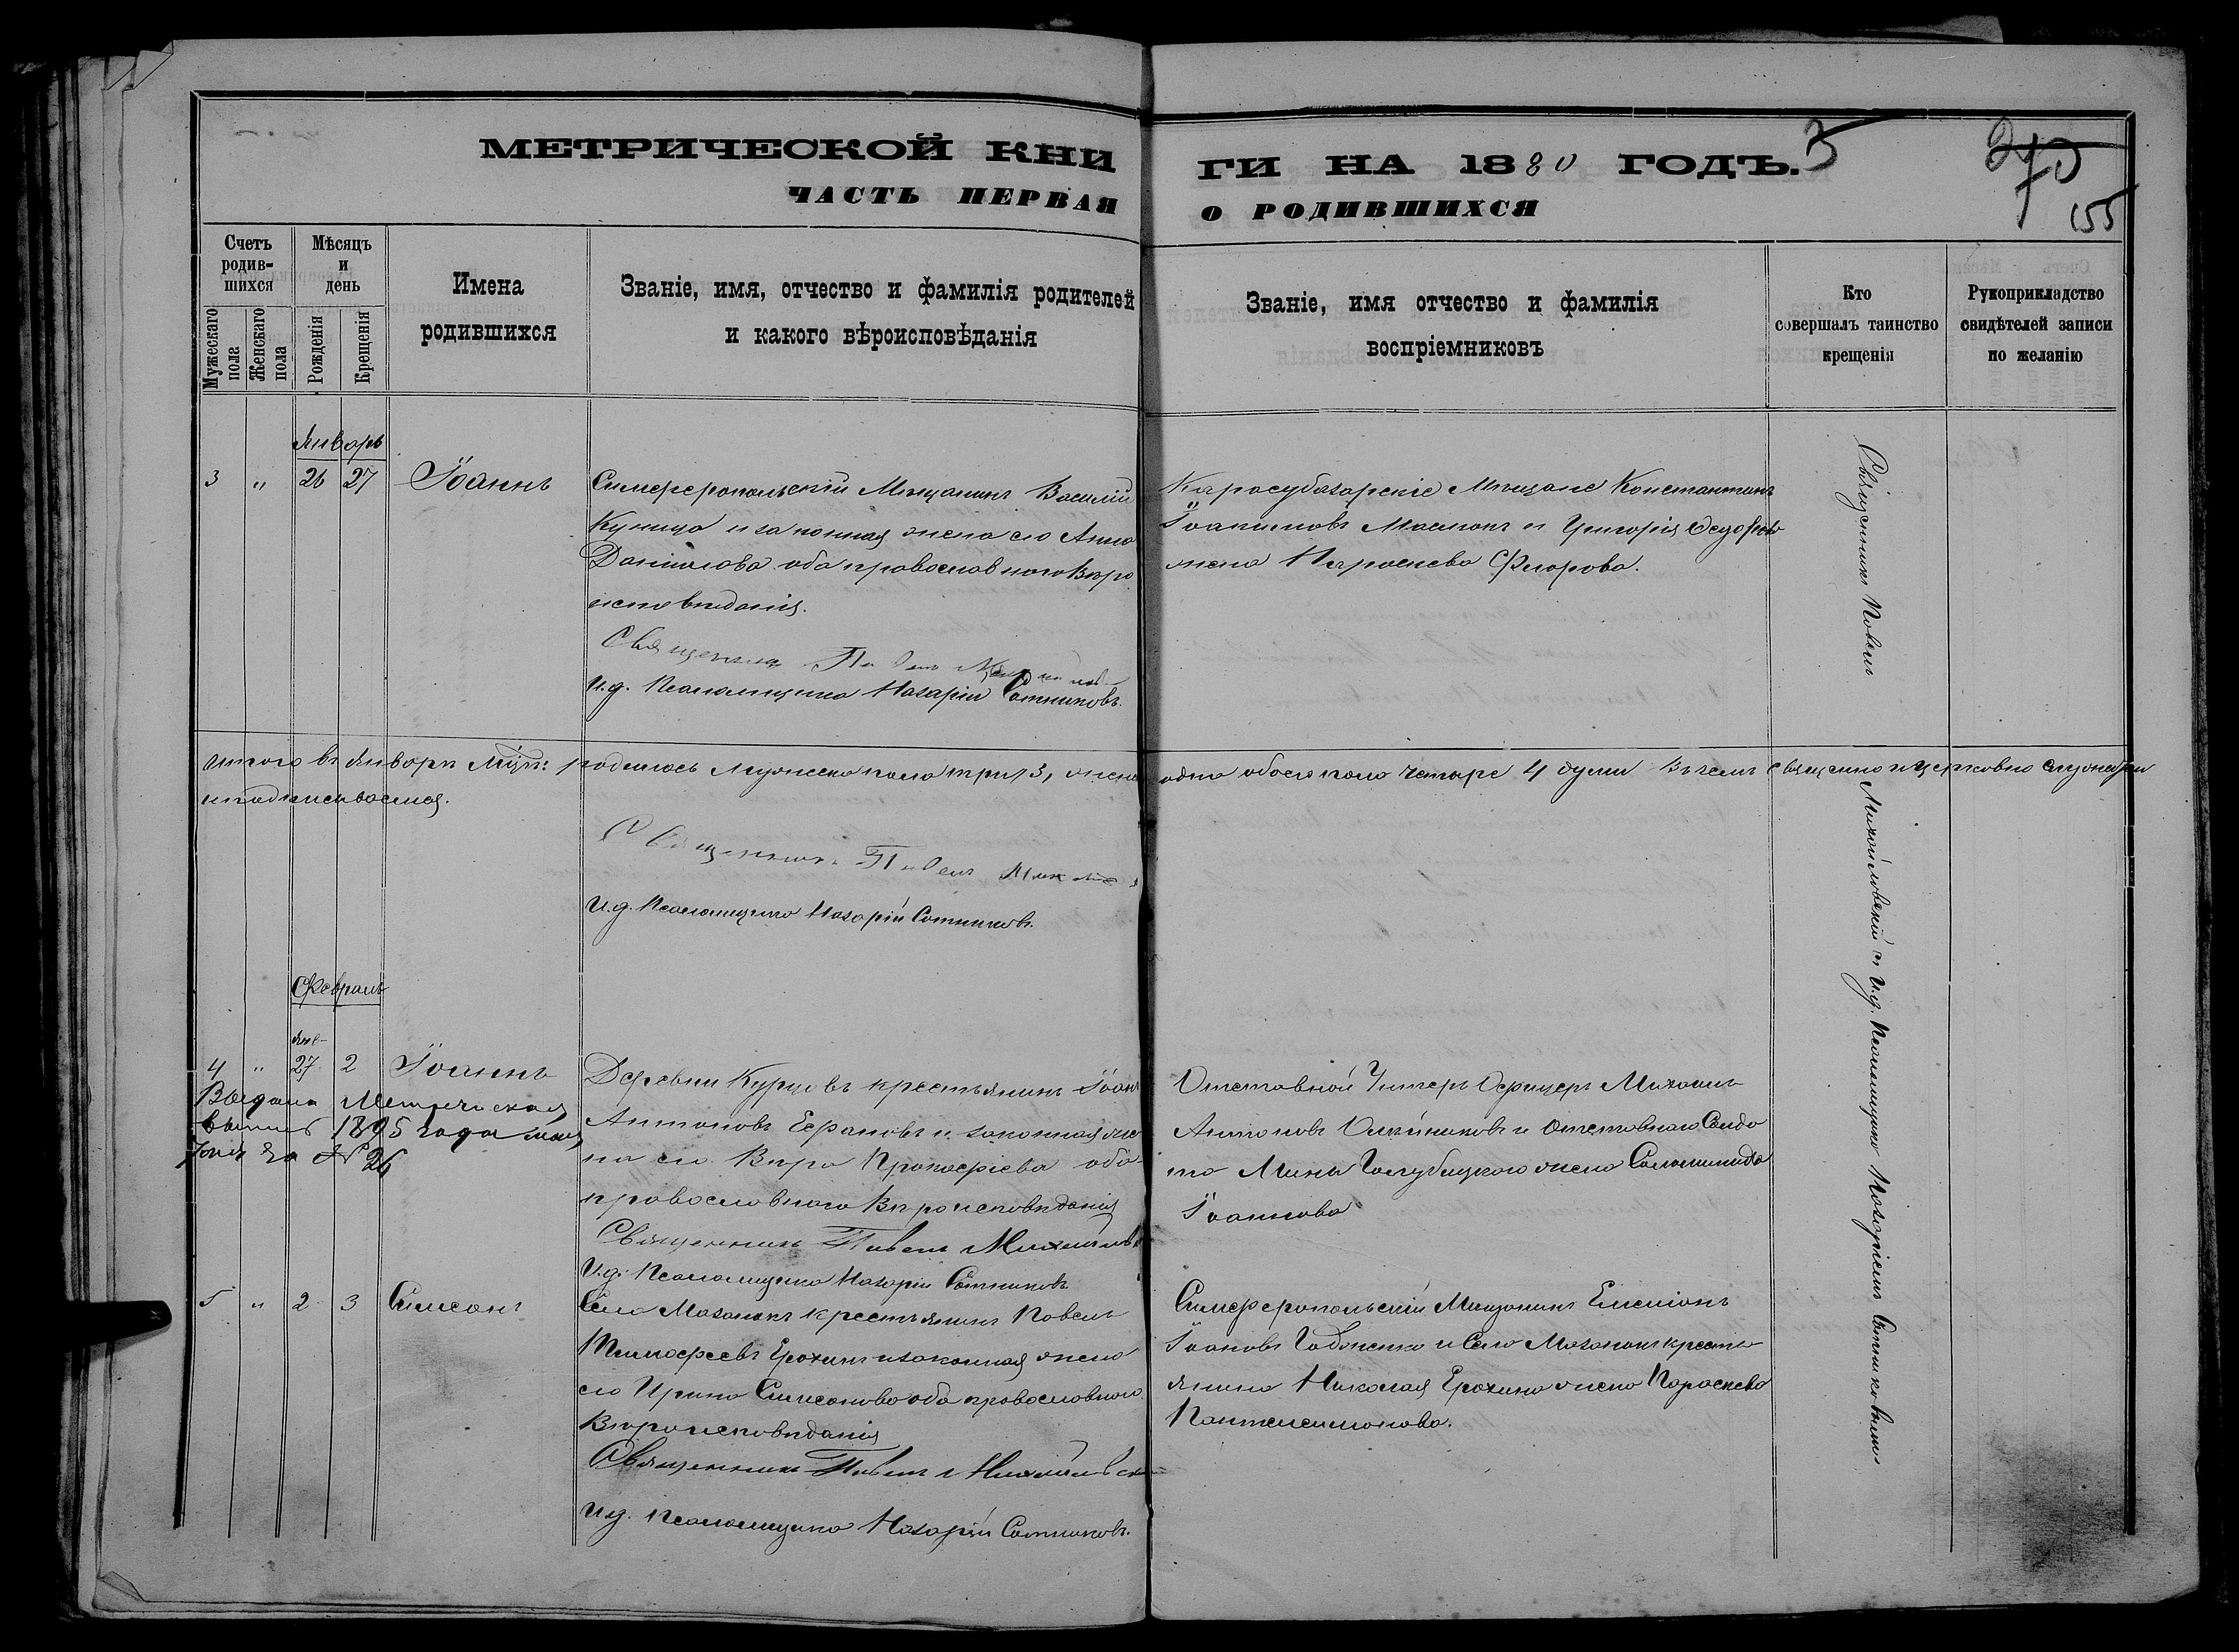 МЕТРИЧЕСКОЙ КНИГИ НА 1880 ГОДЪ.
3
155
ЧАСТЬ ПЕРВАЯ О РОДИВШИХСЯ
Счетъ родив-шихся
Мужескаго пола
Женскаго пола
Мѣсяцъ и день
Рожденія
Крещенія
Имена родившихся
Званіе, имя, отчество и фамилія родителей
и какого вѣроисповѣданія
Званіе, имя отчество и фамилія
воспріемниковъ
Кто
совершалъ таинство
крещенія
Рукоприкладство
свидѣтелей записи
по желанію
Январь
3 " 26 27 Іоаннъ
Симферопольскій Мѣщанинъ Василій
Куница и законная жена его Анна
Даніилова оба православного Вѣро
исповѣданія.
Священникъ Павелъ
И.д. Псаломщика Назарій Сотниковъ.
Карасубазарскіе Мѣщане Константинъ
Іоакимовъ и Григорія
жена Параскева Флорова.
Священникъ Павелъ Михайловскій и И.д. Псаломщика Назаріемъ Сотниковымъ
Итого въ Январѣ Мцѣ: родилось Мужеска пола три 3, женска одна обоего пола четыре 4 души Въ чемъ священно и церковно служители
и подписываемся.
Священникъ Павелъ
И.д. Псаломщика Назарій Сотниковъ.
Февраль
Янв-
4 " 27 2 Іоаннъ
Выдана Метрическая
1895 года
за № 26
Деревни Курцовъ крестьянинъ Іоанъ
Антоновъ Ефрановъ и законная же
на его Вѣра Прокофіева оба
православного Вѣроисповѣданія
Священникъ Павелъ Михайловск
И.д. Псаломщика Назарій Сотниковъ
Отставной Унтеръ Офицеръ Михаилъ
Антоновъ и Отставнаго Солда
та Мины Голубицкаго жена Соломинида
Іоаннова
5 " 2 3 Симеонъ
Села Мазанки крестьянинъ Павелъ
Тимофеевъ Ерохинъ и законная жена
его Ирина Симеонова оба православного
Вѣроисповѣданія
Священникъ Павелъ Михайловск
И.д. Псаломщика Назарій Сотниковъ.
Симферопольскій Мѣщанинъ
Іоановъ и Села Мазанки кресть
янина Николая Ерохина жена Параскева
Пантелеимонова.